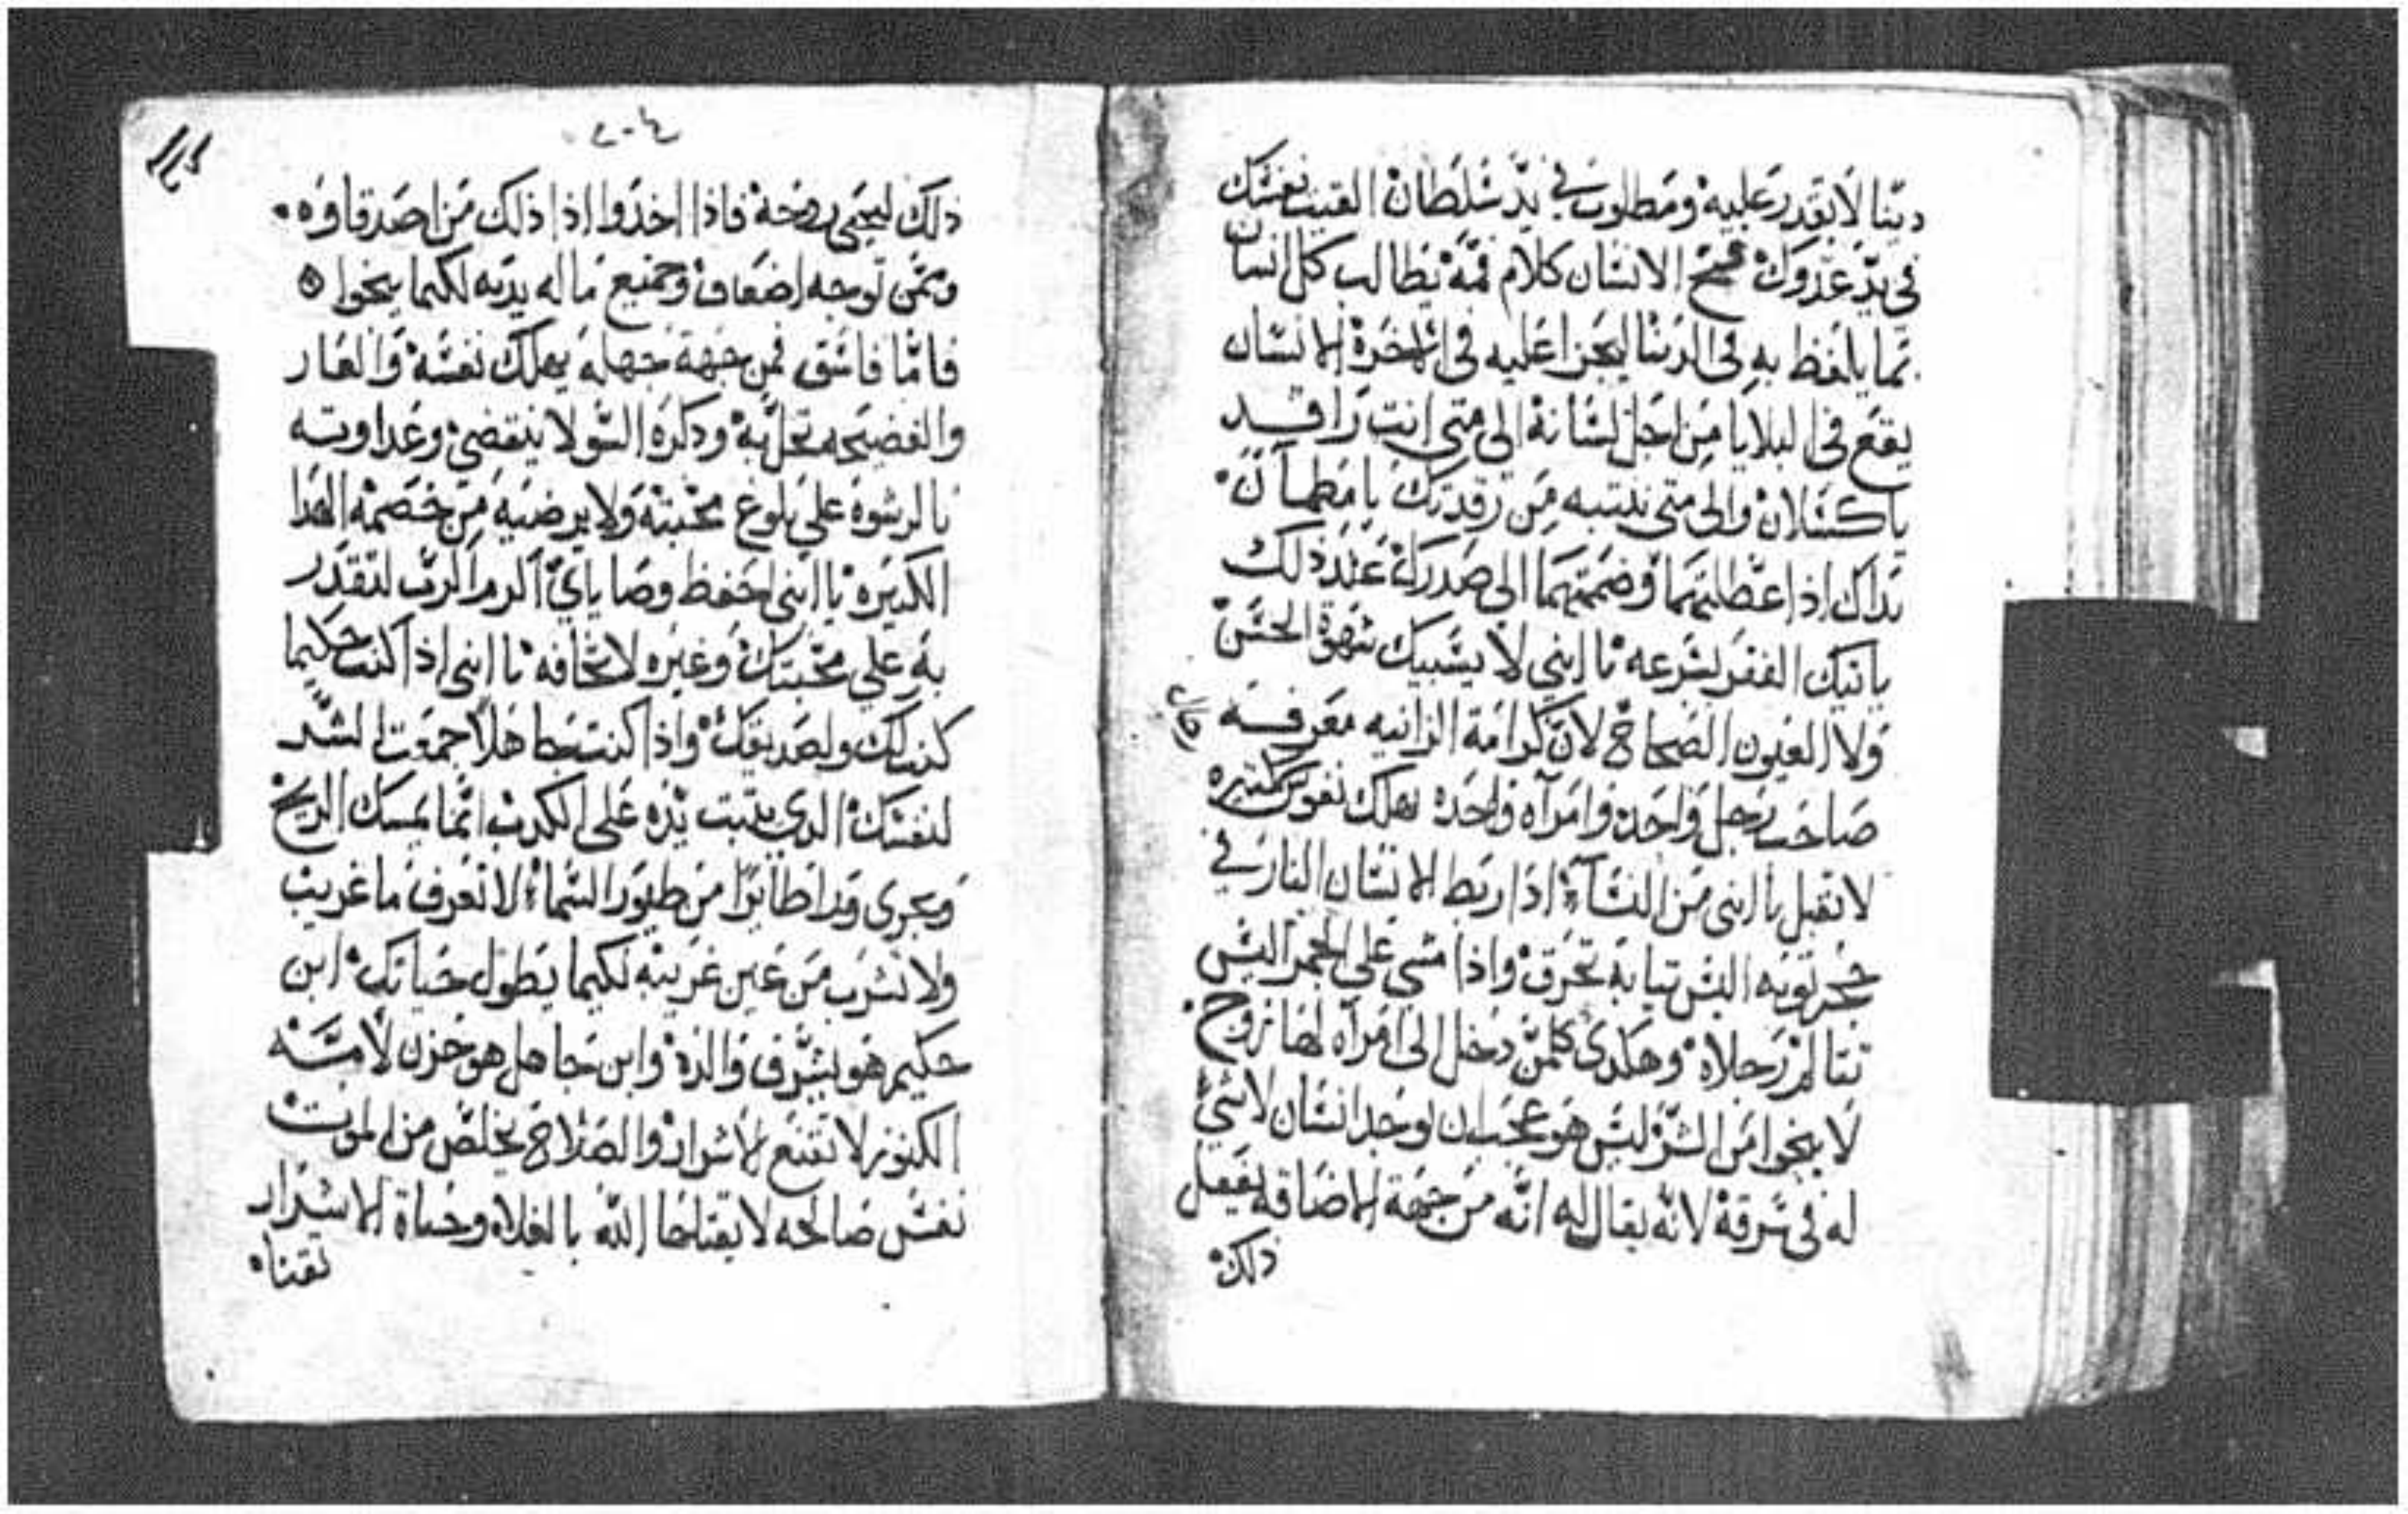 دينا لا يقدر عليه ومطلوب في يد سلطان القيت نفسك
في يد عدوك فتح الانسان كلام فمه يطالب كل انسان
بما يلفظ به في الدنيا ليجزا عليه في الاخرة الانسان
يقع في البلايا من اجل لسانه الى متى انت راقد
يا كسلان والى متى تنتبه من رقدتك يا مطمان
يداك اذا عطلتهما وضممتهما الى صدرك عند ذلك
ياتيك الفقر بسرعه يا ابني لا يسبيك شهوة الحسن
ولا العيون الصحاح لان كرامة الزانيه معرفه
صاحب رجل واحد وامراه واحده تهلك نفوس كثيره
لا تقبل يا ابني من النسآء اذا ربط الانسان النار في
حجر ثوبه اليس ثيابه تحرق واذا مشى على الجمر اليس
تتالم رجلاه وهكدى كلمن دخل الى امراه لها زوج
لا ينجوا من الشر ليس هو عجب ان يوجد انسان لا شي
له في سرقة لانه يقال له انه من جهة الاضاقه يفعل
ذلك
٢٠٤
ذلك ليحيى روحه فاذا اخدوا اذا ذلك من اصدقاوه
وثمن توجه اضعاف وجميع ماله يديه لكيما ينجوا
فاما فاسق فمن جهة جهله يهلك نفسه والعار
والفضيحه تحل به ودكره السو لا ينقضي وعداوته
بالرشوه علي بلوغ محبته ولا يرضيه من خصمه الهدا
الكثيره يا ابني احفظ وصاياي اكرم الرب لتقدر
به علي محبتك وغيره لا تخافه يا ابني اذا كنت حكيما
كنت لك ولصديقك واذا كنت جاهلا جمعت الشر
لنفسك الدي يثبت يده على الكدب انما يمسك الريح
ويجري ورا طائرا من طيور السماء لا تعرف ما غريب
ولا تشرب من عين غريبه لكيما يطول حياتك ابن
حكيم هو يشرف والده وابن جاهل هو حزن لامه
الكنوز لا تنفع الاشرار والصلاح يخلص من الموت
نفس صالحه لا يقتلها الله بالغلاء وحياة الاشرار
تفنا